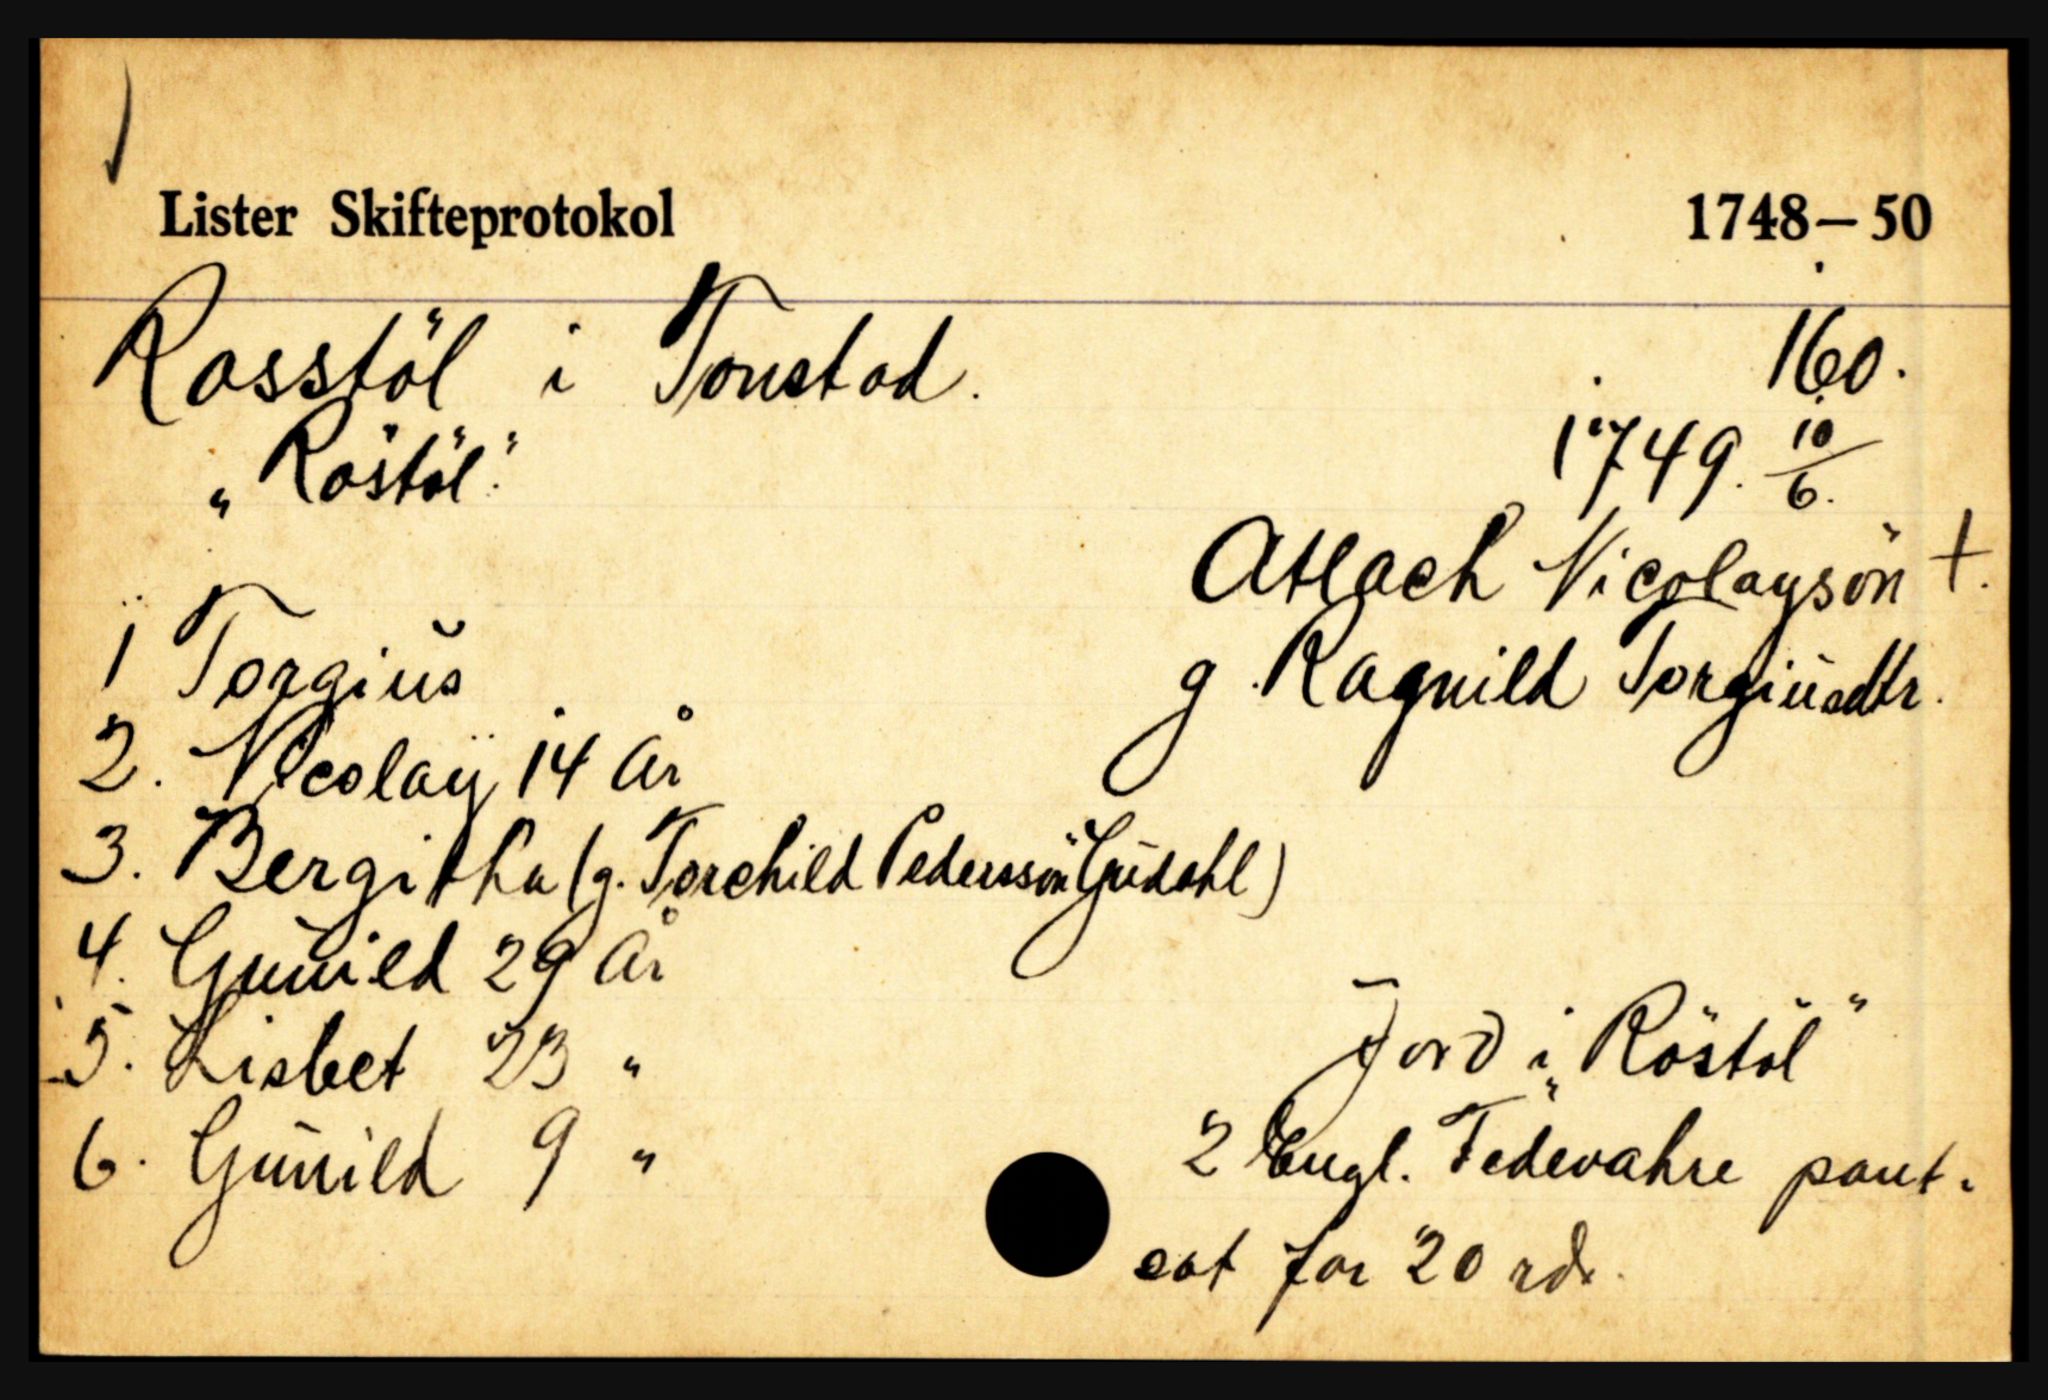 Lister Skifteprotokol 1748–50
Rosstöl i Tonstad. 160.
„Röstöl" 1749. 10/6.
Atlach Nicolaysön †.
g. Ragnild Torgiusdtr.
1 Torgius
2. Nicolaÿ 14 år
3. Bergitha (g. Torchild Pedersson Gudahl)
4. Gunild 29 år
5. Lisbet 23 "
6. Gunild 9 "
Jord i „Röstöl"
2 Engl. Fedevahre pant-
sat for 20 rdr.